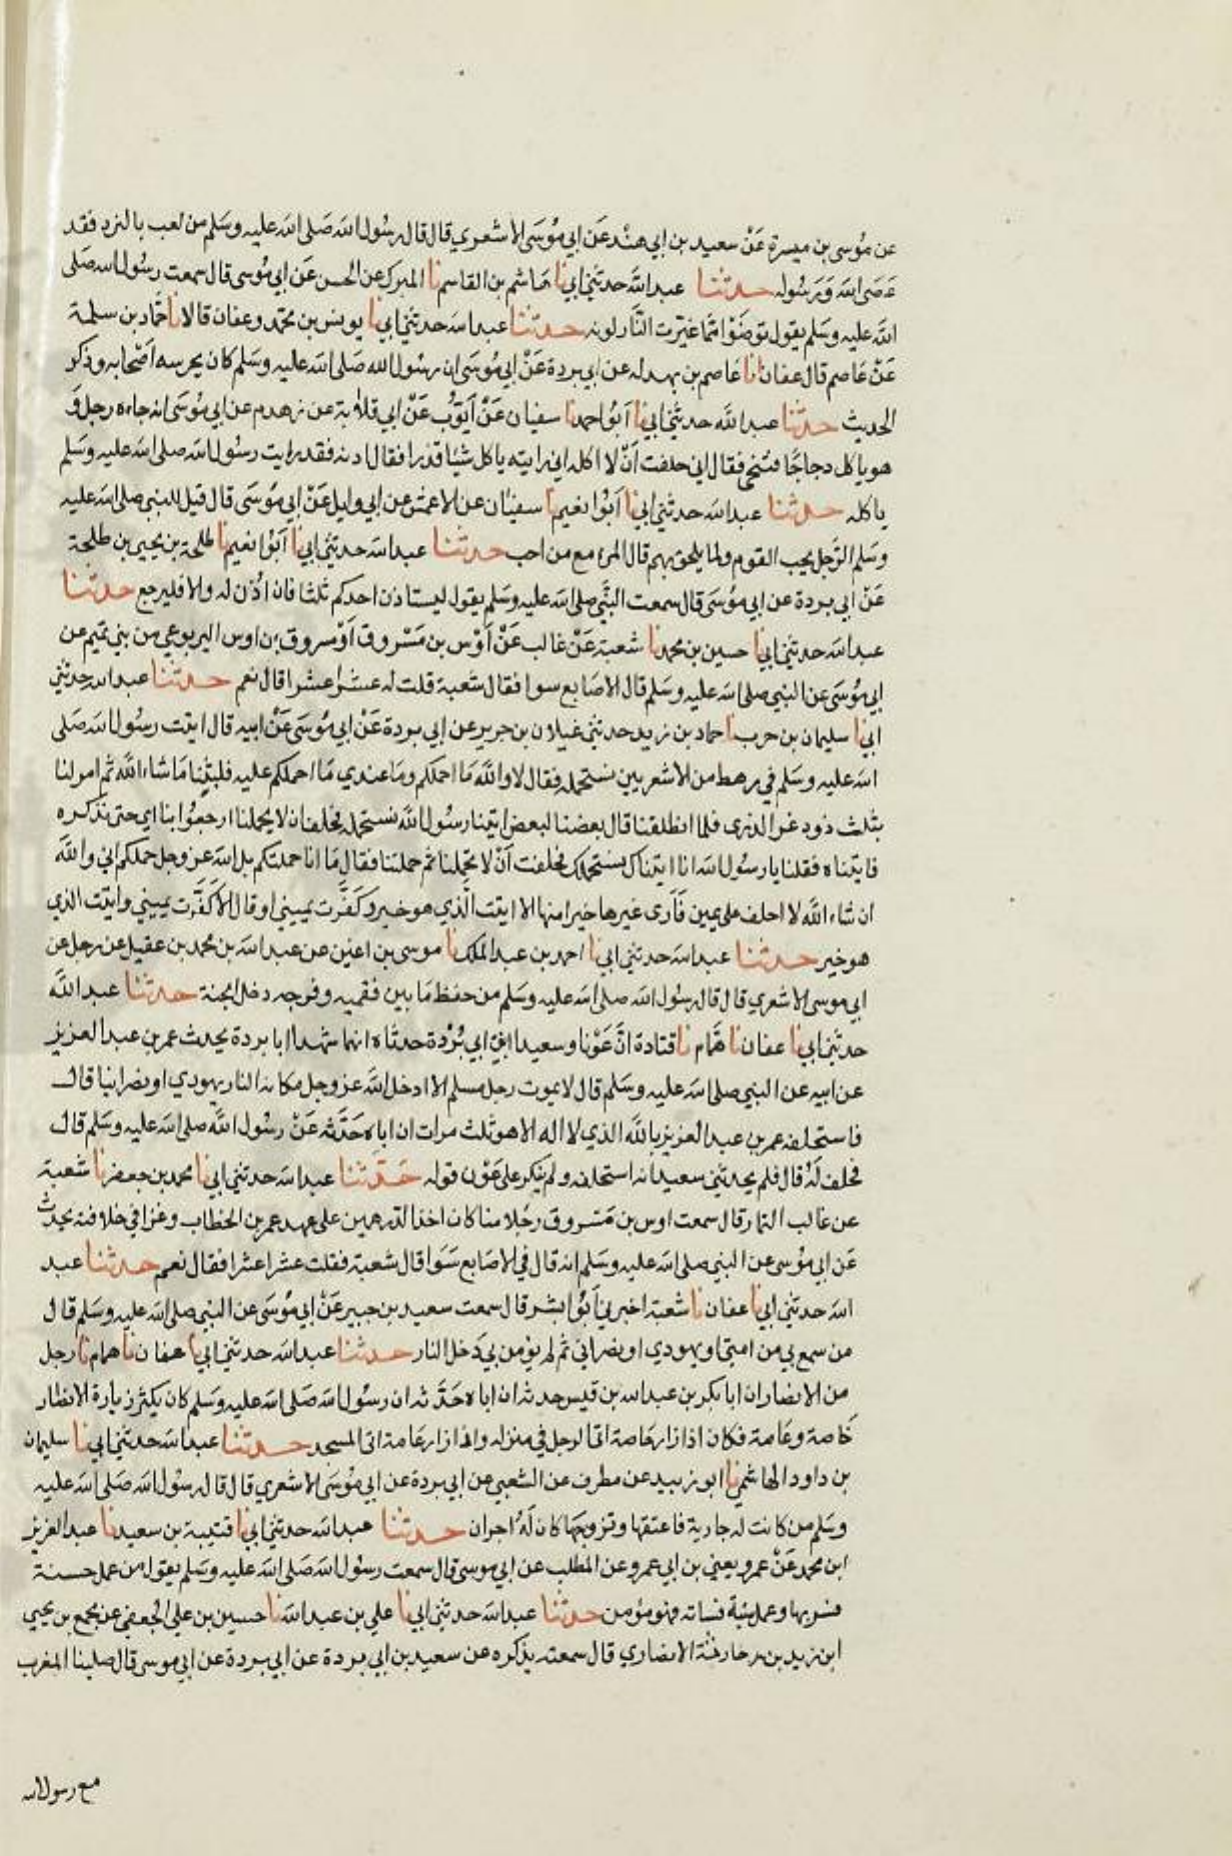 عن موسى بن ميسرة عن سعيد بن ابي هند عن ابي موسى الاشعري قال قال رسول الله صلى الله عليه وسلم من لعب بالنرد فقد
عصى الله ورسوله حدثنا عبد الله حدثني ابي نا هاشم بن القاسم نا المبرك عن الحسن عن ابي موسى قال سمعت رسول الله صلى
الله عليه وسلم يقول توضؤا مما غيرت النار لونه حدثنا عبد الله حدثني ابي نا يونس بن محمد وعفان قالا نا حماد بن سلمة
عن عاصم قال عفان انا عاصم بن بهدله عن ابي بردة عن ابي موسى ان رسول الله صلى الله عليه وسلم كان يحرسه اصحابه وذكر
الحديث حدثنا عبد الله حدثني ابي نا ابو احمد نا سفيان عن ايوب عن ابي قلابة عن زهدم عن ابي موسى انه جاءه رجل و
هو ياكل دجاجا فتنحى فقال اني حلفت ان لا اكله اني رايته ياكل شيئا قذرا فقال ادنه فقد رايت رسول الله صلى الله عليه وسلم
ياكله حدثنا عبد الله حدثني ابي نا ابو نعيم نا سفيان عن الاعمش عن ابي وايل عن ابي موسى قال قيل للنبي صلى الله عليه
وسلم الرجل يحب القوم ولما يلحق بهم قال المرء مع من احب حدثنا عبد الله حدثني ابي نا ابو نعيم نا طلحة بن يحيى بن طلحة
عن ابي بردة عن ابي موسى قال سمعت النبي صلى الله عليه وسلم يقول ليستاذن احدكم ثلثا فان اذن له والا فليرجع حدثنا
عبد الله حدثني ابي نا حسين بن محمد نا شعبة عن غالب عن اوس بن مسروق او مسروق بن اوس اليربوعي من بني تميم عن
ابي موسى عن النبي صلى الله عليه وسلم قال الاصابع سوا فقال شعبة قلت له عشرا عشرا قال نعم حدثنا عبد الله حدثني
ابي نا سليمان بن حرب نا حماد بن زيد حدثني غيلان بن جرير عن ابي بردة عن ابي موسى عن ابيه قال اتيت رسول الله صلى
الله عليه وسلم في رهط من الاشعريين نستحمله فقال لا والله ما احملكم وما عندي ما احملكم عليه فلبثنا ما شاء الله ثم امر لنا
بثلث ذود غر الذرى فلما انطلقنا قال بعضنا لبعض اتينا رسول الله نستحمله فحلف ان لا يحملنا ارجعوا بنا اي حتى نذكره
فاتيناه فقلنا يا رسول الله انا اتيناك نستحملك فحلفت ان لا تحملنا ثم حملتنا فقال ما انا حملتكم بل الله عز وجل حملكم اني والله
ان شاء الله لا احلف على يمين فارى غيرها خيرا منها الا اتيت الذي هو خير وكفرت يميني او قال الا كفرت يميني واتيت الذي
هو خير حدثنا عبد الله حدثني ابي نا احمد بن عبد الملك نا موسى بن اعين عن عبد الله بن محمد بن عقيل عن رجل عن
ابي موسى الاشعري قال قال رسول الله صلى الله عليه وسلم من حفظ ما بين فقميه وفرجه دخل الجنة حدثنا عبد الله
حدثني ابي نا عفان نا همام نا قتادة ان عونا وسعيدا ابني ابي بردة حدثاه انهما شهدا ابا بردة يحدث عمر بن عبد العزيز
عن ابيه عن النبي صلى الله عليه وسلم قال لا يموت رجل مسلم الا ادخل الله عز وجل مكانه النار يهودي او نصرانيا قال
فاستحلفه عمر بن عبد العزيز بالله الذي لا اله الا هو ثلث مرات ان اباه حدثه عن رسول الله صلى الله عليه وسلم قال
فحلف له قال فلم يحدثني سعيد انه استحلفه ولم ينكر على عون قوله حدثنا عبد الله حدثني ابي نا محمد بن جعفر نا شعبة
عن غالب التمار قال سمعت اوس بن مسروق رجلا منا كان اخذ الدرهمين على عهد عمر بن الخطاب وغزا في خلافته يحدث
عن ابي موسى عن النبي صلى الله عليه وسلم انه قال في الاصابع سوا قال شعبة فقلت عشرا عشرا فقال نعم حدثنا عبد
الله حدثني ابي نا عفان نا شعبة اخبرني ابو بشر قال سمعت سعيد بن جبير عن ابي موسى عن النبي صلى الله عليه وسلم قال
من سمع بي من امتي او يهودي او نصراني ثم لم يؤمن بي دخل النار حدثنا عبد الله حدثني ابي نا عفان نا همام نا رجل
من الانصار ان ابا بكر بن عبد الله بن قيس حدثه ان اباه حدثه ان رسول الله صلى الله عليه وسلم كان يكثر زيارة الانصار
خاصة وعامة فكان اذا زار خاصة اتى الرجل في منزله واذا زار عامة اتى المسجد حدثنا عبد الله حدثني ابي نا سليمان
بن داود الهاشمي نا ابو زبيد عن مطرف عن الشعبي عن ابي بردة عن ابي موسى الاشعري قال قال رسول الله صلى الله عليه
وسلم من كانت له جارية فاعتقها وتزوجها كان له اجران حدثنا عبد الله حدثني ابي نا قتيبة بن سعيد نا عبد العزيز
ابن محمد عن عمرو يعني بن ابي عمرو عن المطلب عن ابي موسى قال سمعت رسول الله صلى الله عليه وسلم يقول من عمل حسنة
فسر بها وعمل سيئة فساته فهو مؤمن حدثنا عبد الله حدثني ابي نا علي بن عبد الله نا حسين بن علي الجعفي عن مجمع بن يحيى
ابن زيد بن حارثة الانصاري قال سمعته يذكره عن سعيد بن ابي بردة عن ابي بردة عن ابي موسى قال صلينا المغرب
مع رسول الله